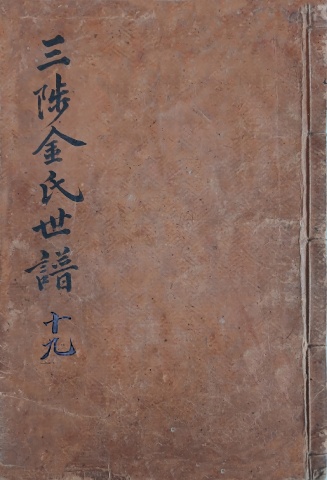 三陟金氏世譜 十九